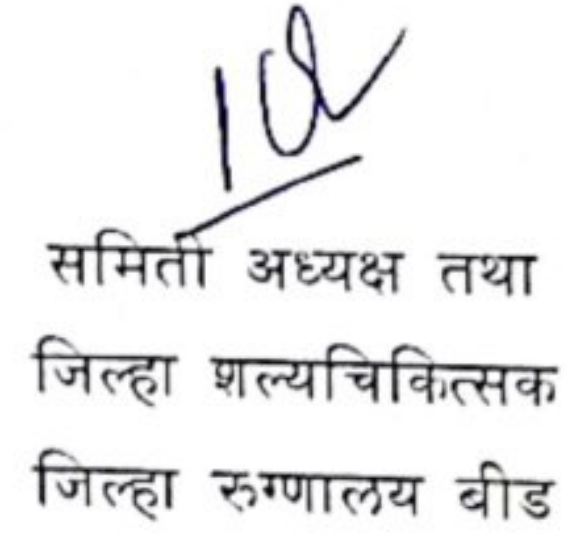 समिती अध्यक्ष तथा
जिल्हा शल्यचिकित्सक
जिल्हा रुग्णालय बीड